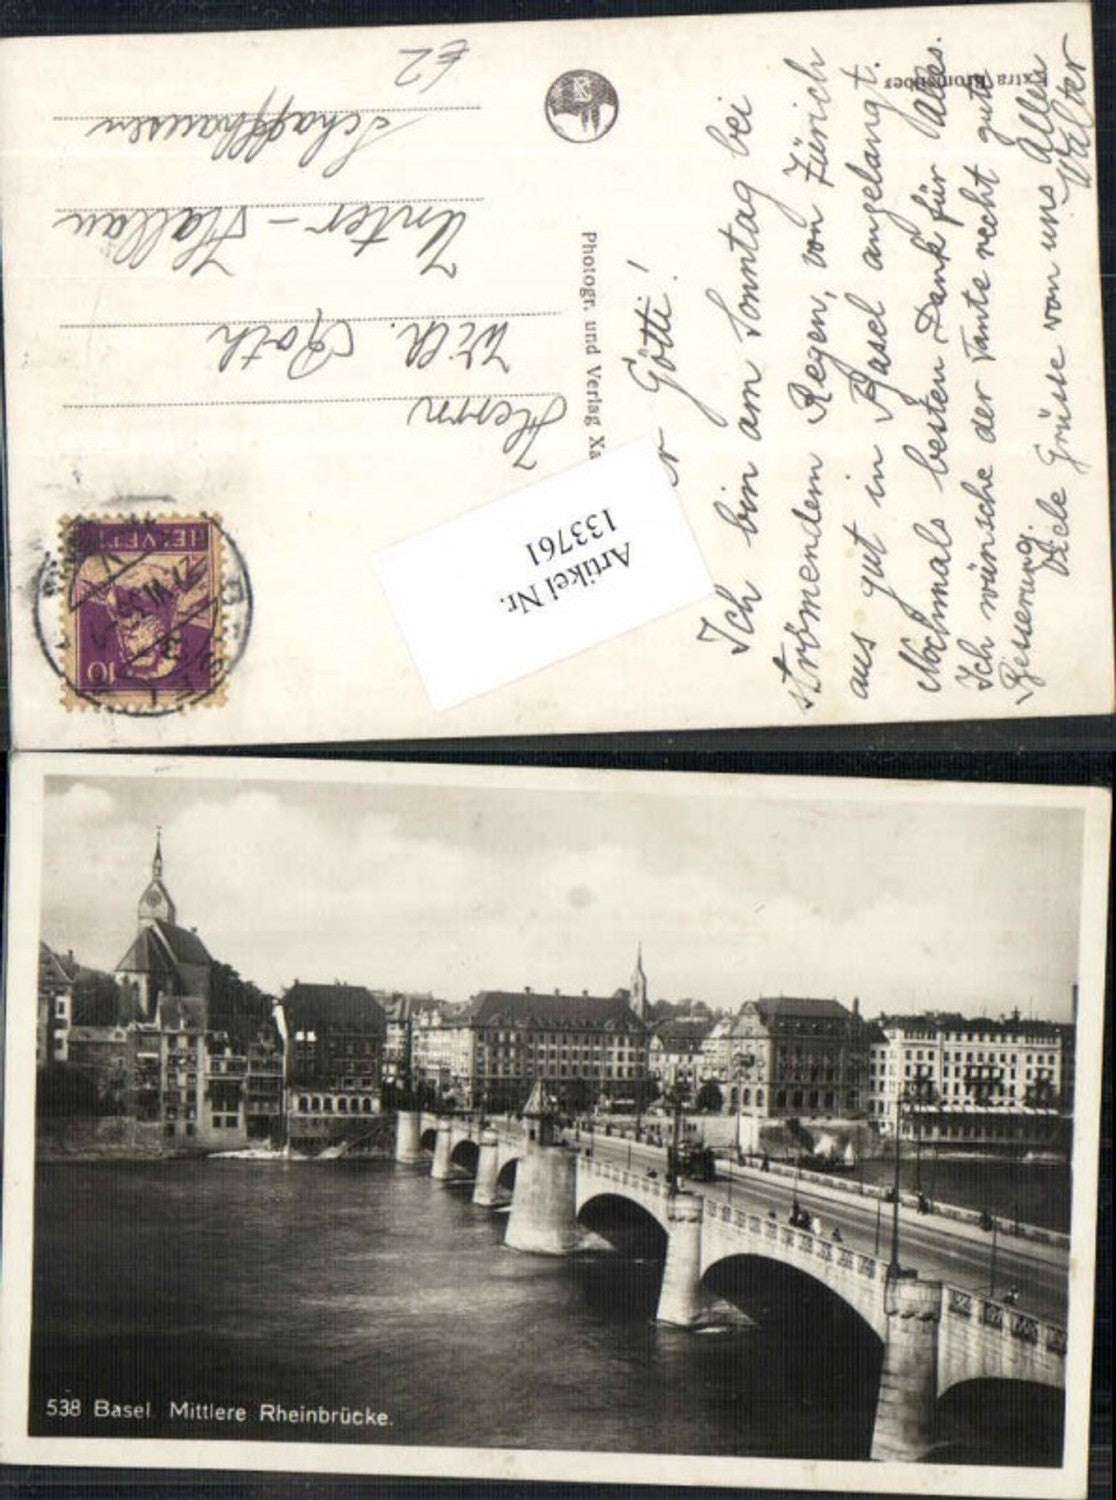 [Lieb]er Götti!
Ich bin am Sonntag bei
strömendem Regen, von Zürich
aus gut in Basel angelangt.
Nochmals besten Dank für alles.
Ich wünsche der Tante recht gute
Besserung.
Viele Grüsse von uns Allen
Walter
Photogr. und Verlag Xa
Herrn
Wilh. Roth
Unter-Hallau
Schaffhausen
€2
HELVETIA
10
Artikel Nr.
133761
538 Basel. Mittlere Rheinbrücke.